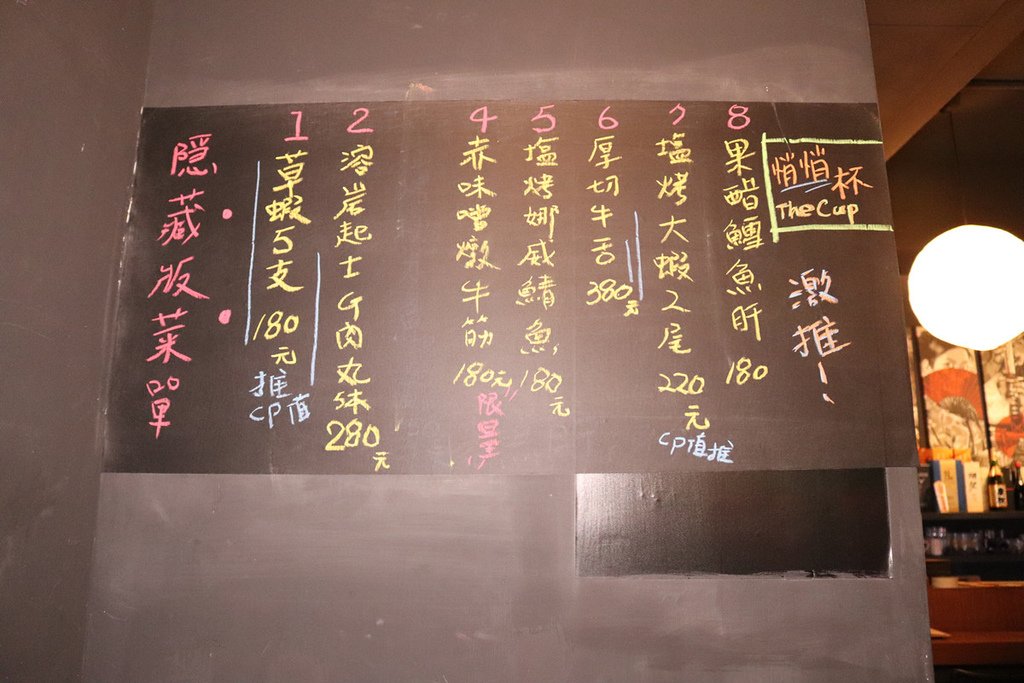 隱藏版菜單
1
草蝦5支
180元
推
CP值
2
溶岩起士牛肉丸
5本
280元
4
赤味噌燉牛筋
180元
限量
5
塩烤娜威鯖魚
180元
6
厚切牛舌
380元
7
塩烤大蝦2尾
220元
CP值推
8
果醋鱈魚肝
180
悄悄杯
The Cup
激推!